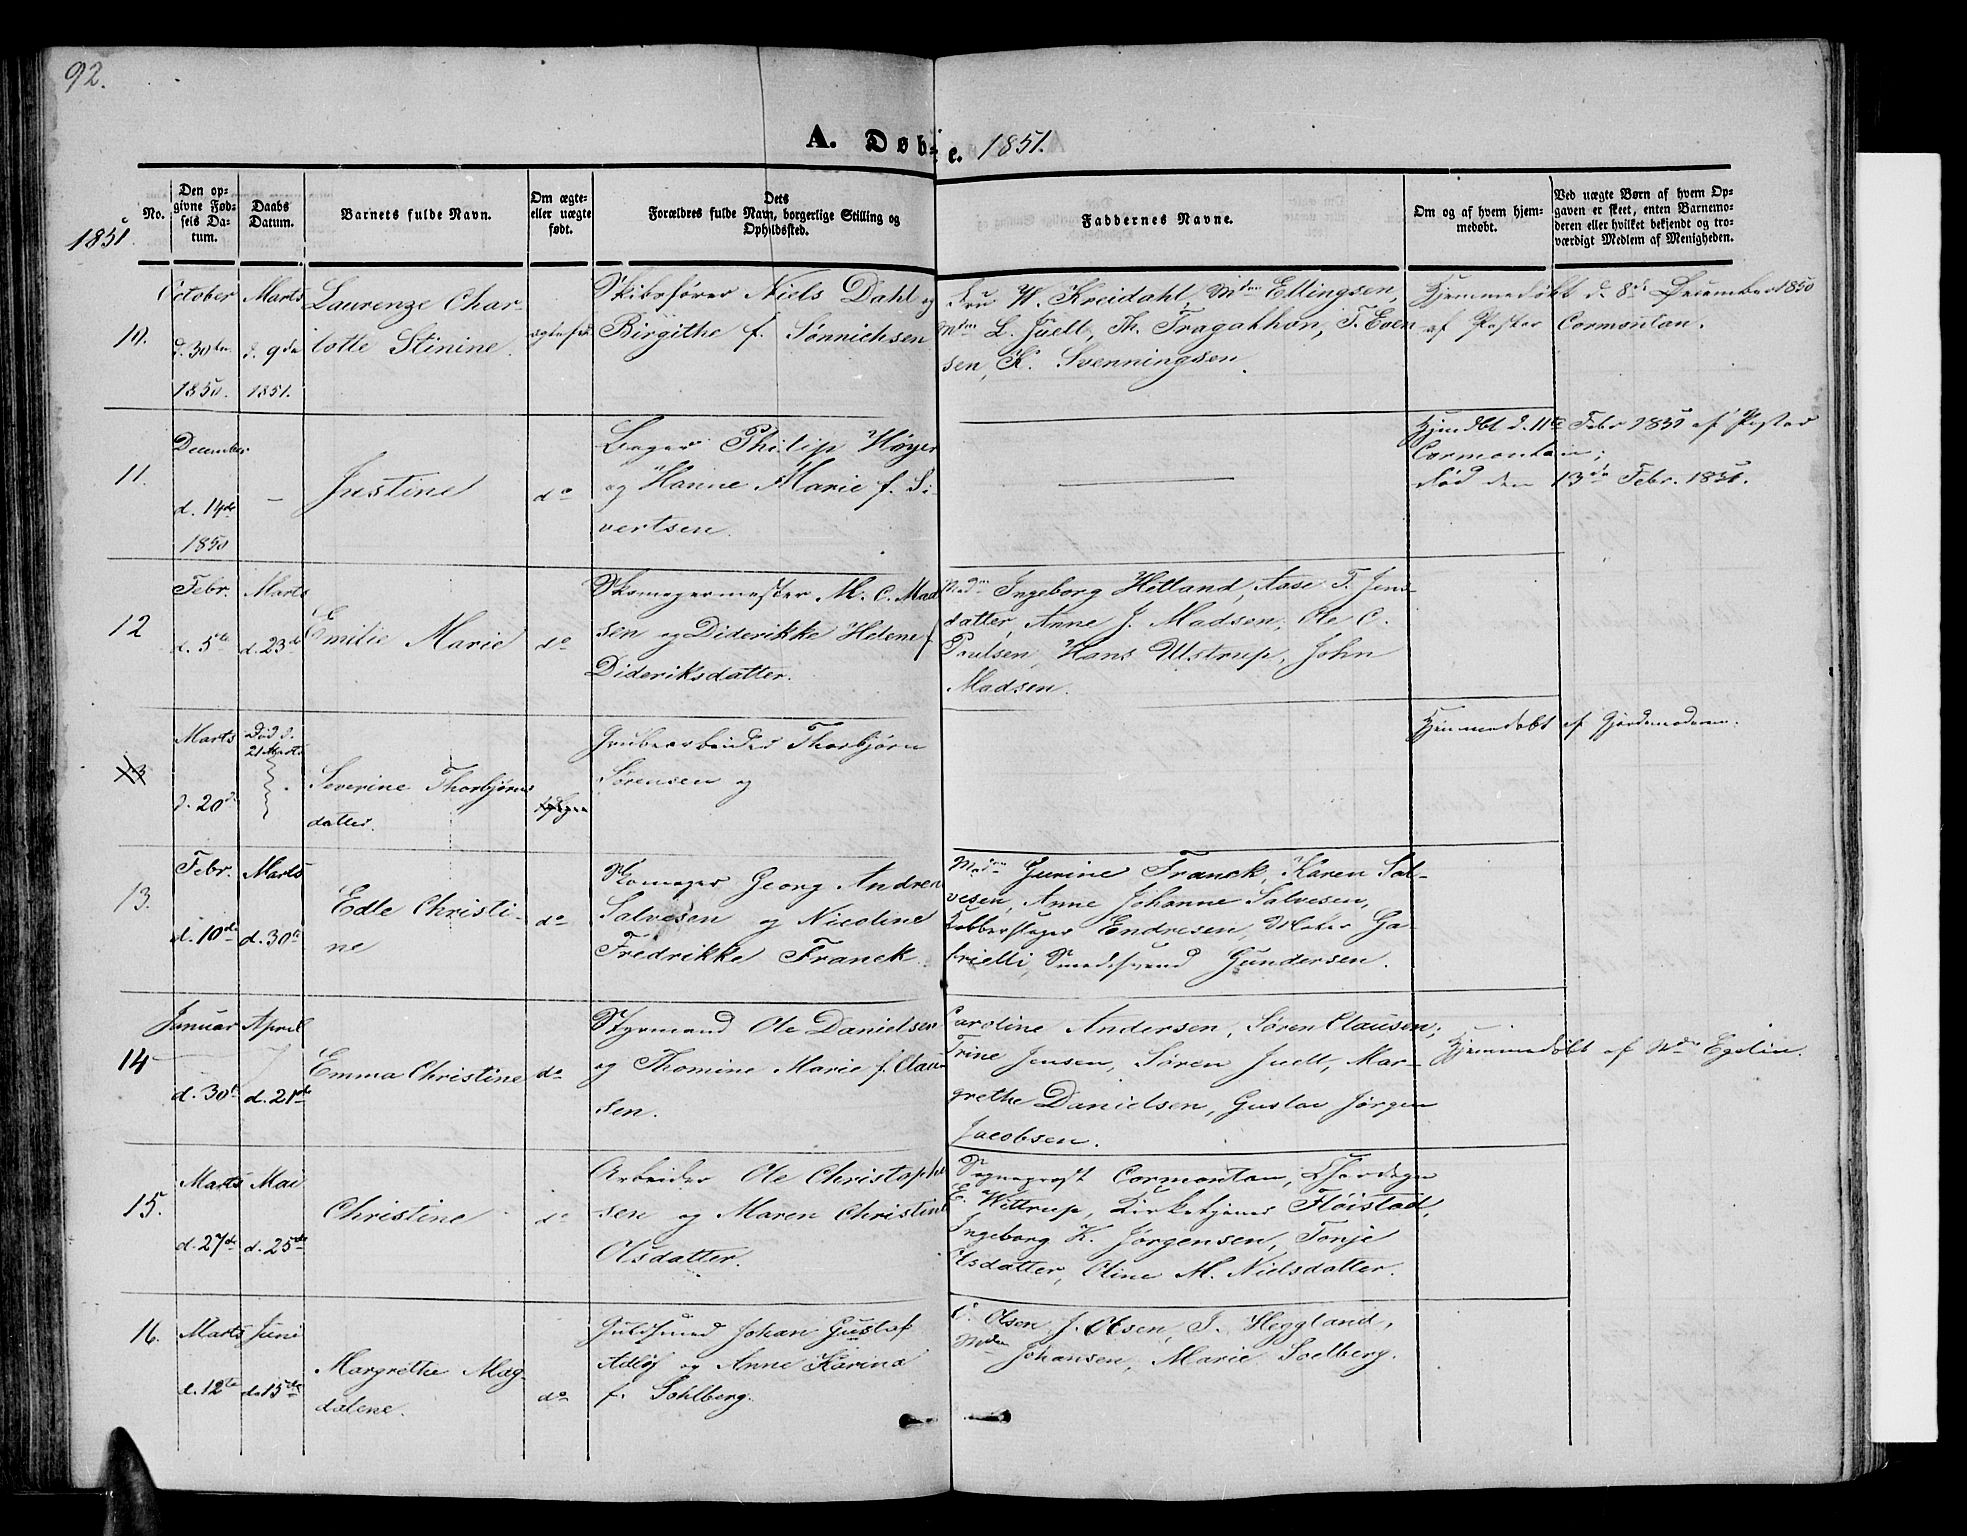 92.
A. Døbte. 1851.
1851.
No.
Den op-
givne Fød-
sels Da-
tum.
Daabs
Datum.
Barnets fulde Navn.
Om ægte-
eller uægte
født.
Dets
Forældres fulde Navn, borgerlige Stilling og
Opholdssted.
Faddernes Navne.
Om og af hvem hjem-
medøbt.
Ved uægte Børn af hvem Op-
gaven er skeet, enten Barnemo-
deren eller hvilket bekjendt og tro-
værdigt Medlem af Menigheden.
10.
October
d. 30te
1850.
Marts
d. 9de
1851.
Laurenze Char-
lotte Stinine.
Skibsfører Niels Dahl og
Birgithe f. Sønnichsen
Fru W. Kreidahl, Mdm Ellingsen,
Mdm L. Juell, Th. Tragathon, T. Even
sen, K. Svenningsen.
Hjemmedøbt d. 8de December 1850
af Pastor Cormontan.
11.
December
d. 14de
1850
-
Justine
do
Bager Philip Høyer
og Hanne Marie f. Si-
vertsen.
Hjemdbt d. 11te Febr 1851 af Pastor
Cormontan;
død den 13de Febr. 1851.
12
Febr.
d. 5te
Marts
d. 23de
Emilie Marie
do
Skomagermester M. C. Mad
sen og Diderikke Helene f.
Dideriksdatter.
Mdm Ingeborg Hetland, Aase T. Jens-
datter, Anne J. Madsen, Ole C.
Poulsen, Hans Ulstrup, John
Madsen.
13
Marts
d. 20de
Død d.
21 Marts
Severine Thorbjørns
datter.
Grubearbeider Thorbjørn
Sørensen og
Hjemmedøbt af Gjordemoderen.
13.
Febr.
d. 10de
Marts
d. 30te
Edle Christi-
ne
do
Skomager Georg Andreas
Salvesen og Nicoline
Fredrikke Franck.
Mdm Gurine Franck, Karen Sal-
vesen, Anne Johanne Salvesen,
Kobberslager Endresen, Maler Ga-
brielli, Smedesvend Gundersen.
14
Januar
d. 30te
April
d. 21de
Emma Christine
do
Styrmand Ole Danielsen
og Thomine Marie f. Clau-
sen.
Caroline Andersen, Søren Clausen,
Trine Jensen, Søren Juell, Mar-
grethe Danielsen, Gustav Jørgen
Jacobsen.
Hjemmedøbt af Mdm Egelin.
15.
Marts
d. 27de
Mai
d. 25de
Christine
do
Arbeider Ole Christophe
sen og Maren Christine
Olsdatter.
Sognepræst Cormontan, Chordegn
E. Wittrup, Kirketjener Fløistad,
Ingeborg K. Jørgensen, Tonje
Olsdatter, Oline M. Nielsdatter.
16.
Marts
d. 12te
Juni
d. 15de
Margrethe Mag-
dalene.
do
Guldsmed Johan Gustaf
Adlöf og Anne Karina
f. Sohlberg.
O. Olsen, J. Olsen, I. Heggland,
Mdm Johansen, Marie Soelberg.